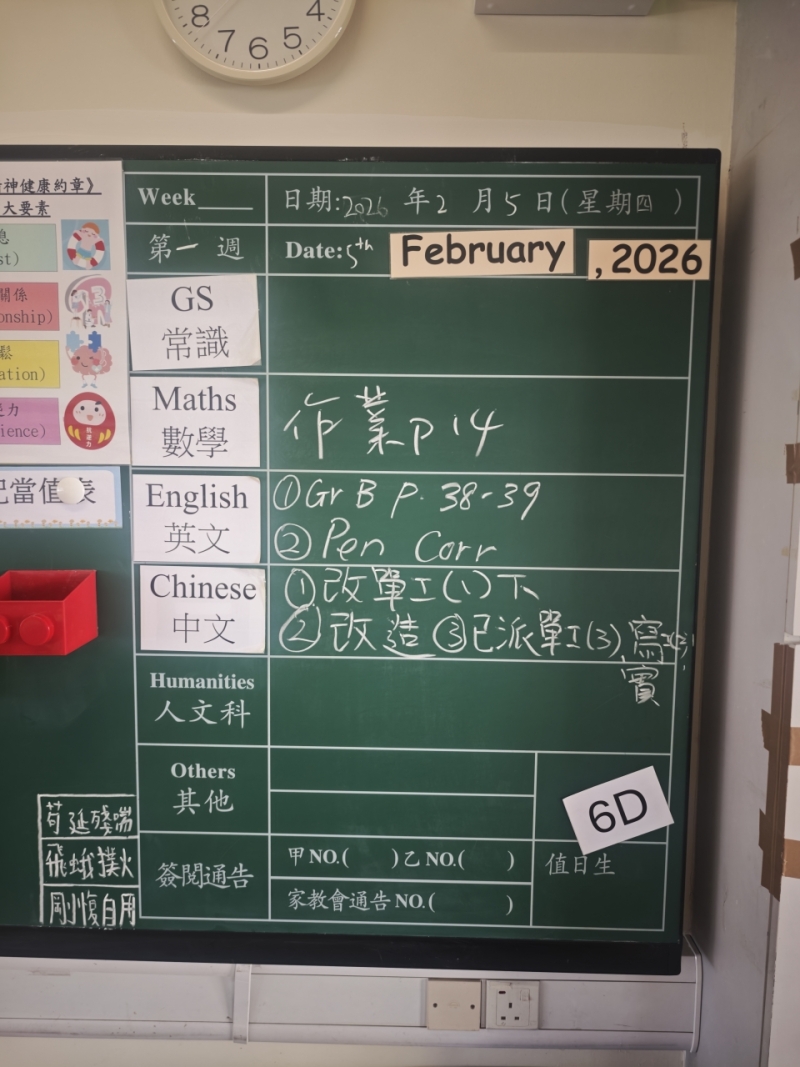 8 7 6 5 4
神健康約章》
大要素
st)
關係
onship)
鬆
ation)
力
ience)
抗逆力
當值表
Week
日期:2026 年2 月5日(星期四 )
第一週
Date:5th February ,2026
GS
常識
Maths
數學
作業P.14
English
英文
①Gr B P. 38-39
②Pen Corr
Chinese
中文
①改單工(1)下
②改造 ③已派單工(3)
寫
實
Humanities
人文科
Others
其他
6D
簽閱通告
甲NO.( )乙NO.( )
家教會通告NO.( )
值日生
苟延殘喘
飛蛾撲火
剛愎自用